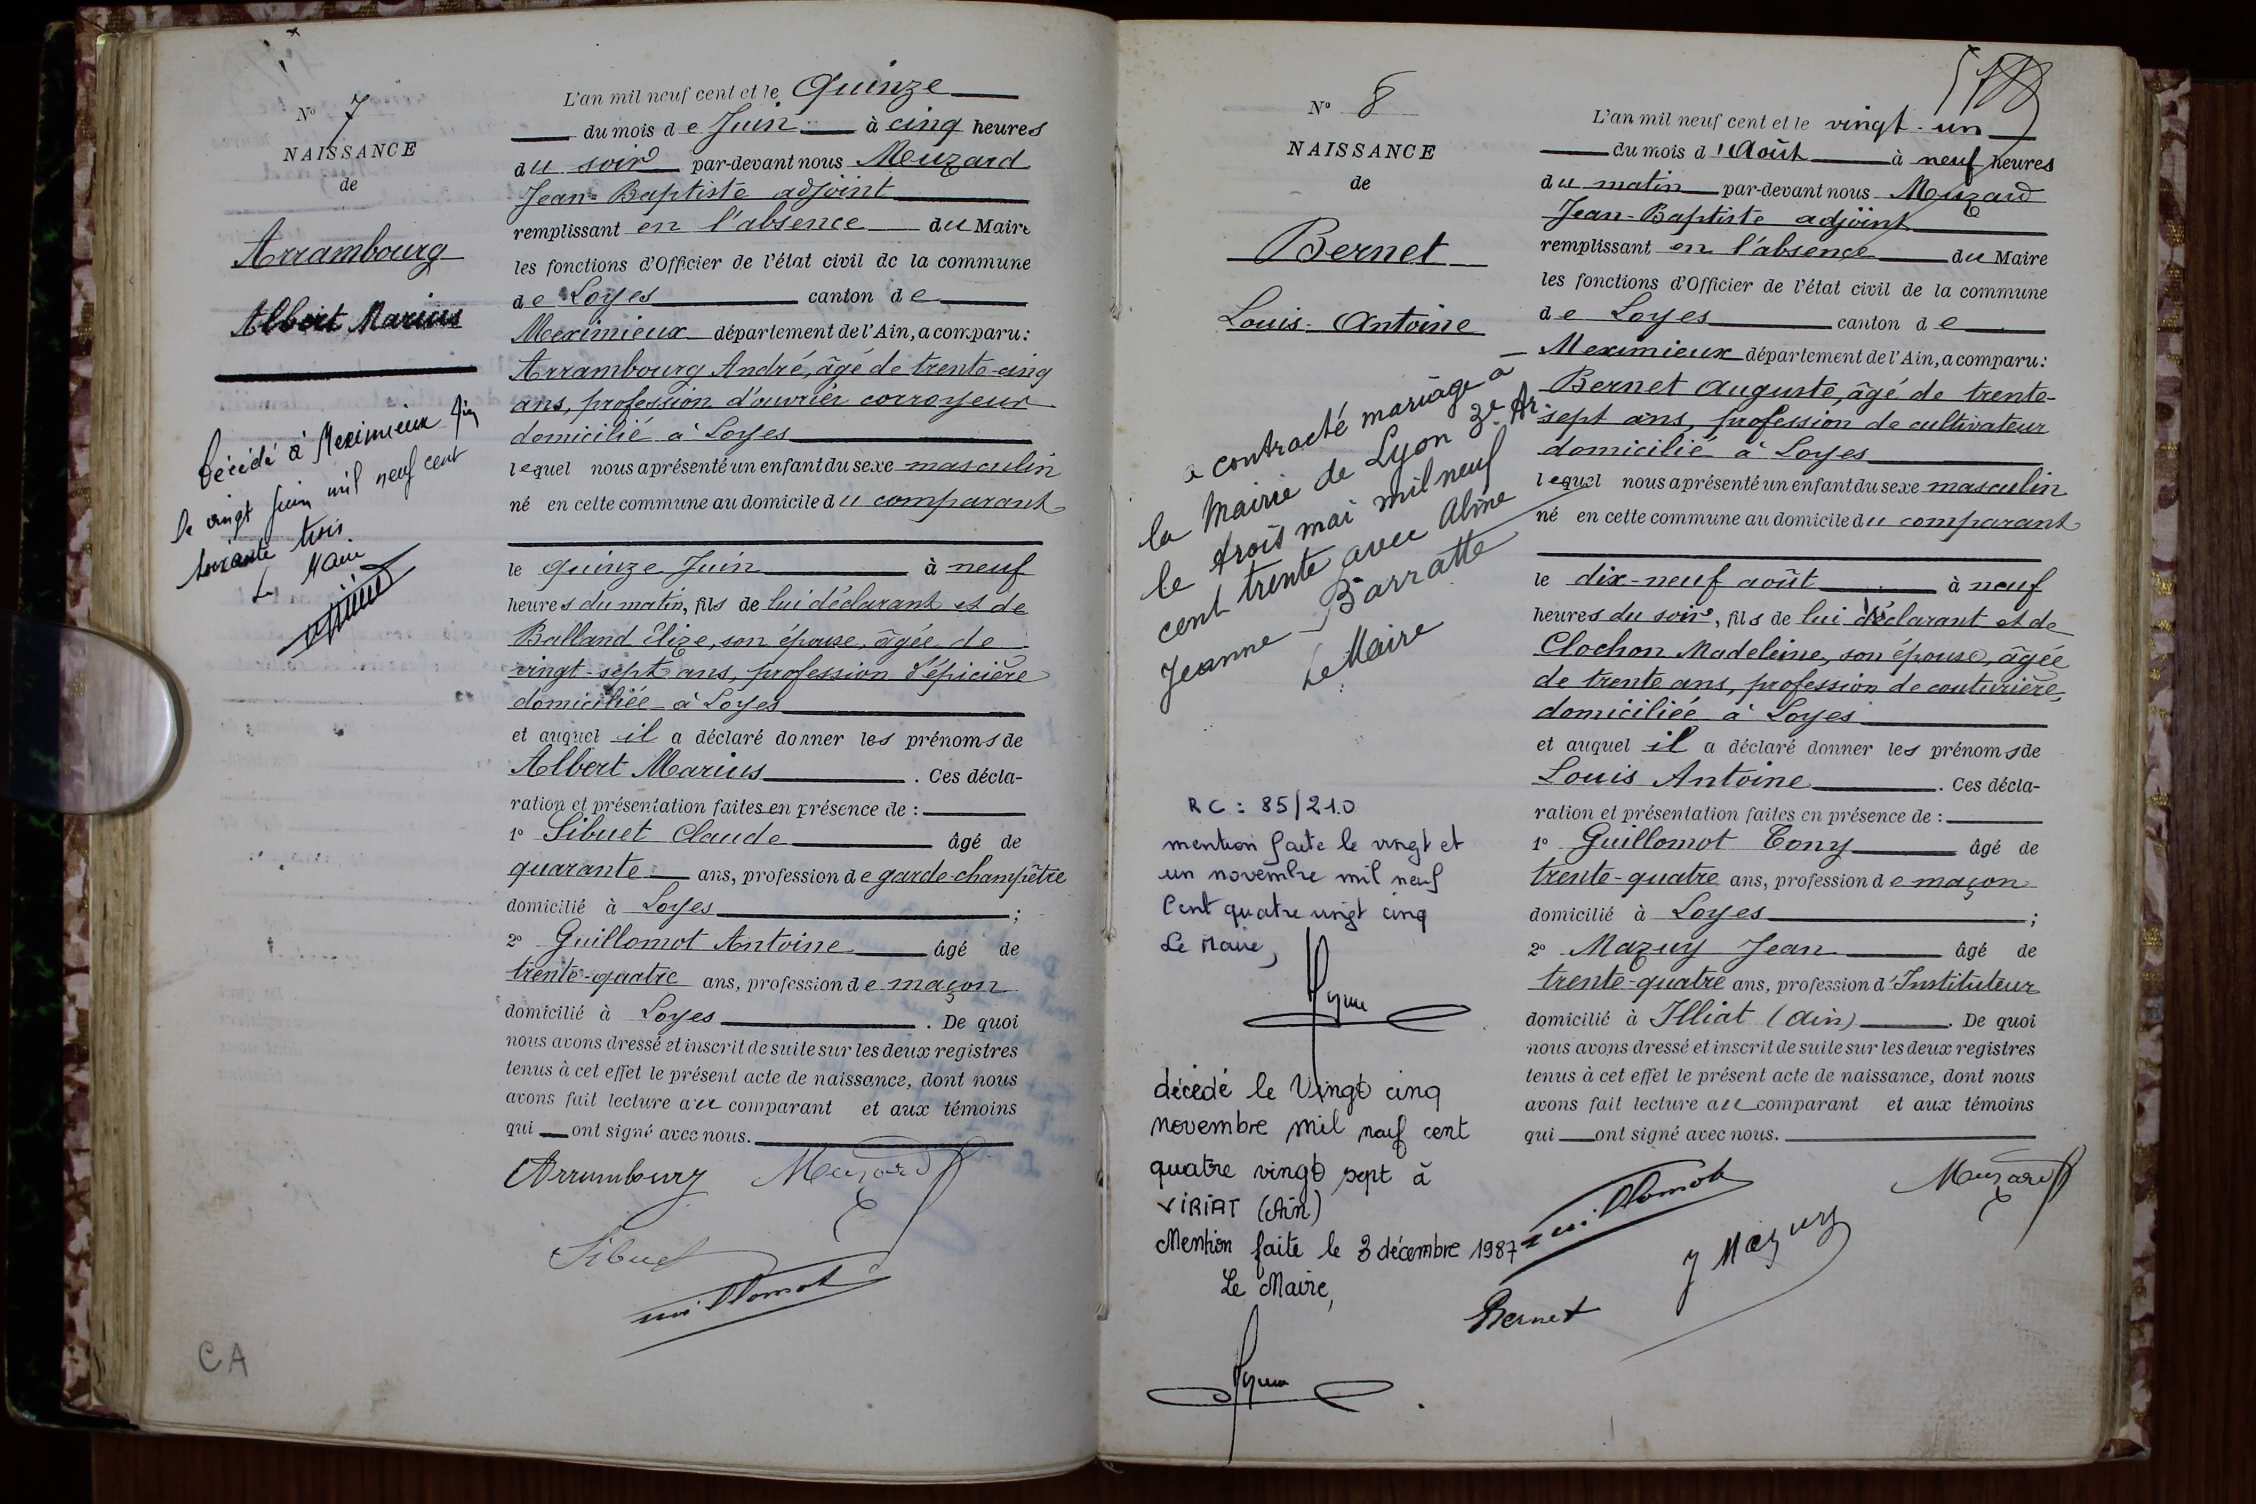 N° 7
NAISSANCE
de
Arrambourg
Albert Marius
Décédé à Meximieux Ain
le vingt juin mil neuf cent
soixante trois
Le Maire
L'an mil neuf cent et le Quinze
du mois de Juin à cinq heures
du soir par-devant nous Meuzard
Jean-Baptiste adjoint
remplissant en l'absence du Maire
les fonctions d'Officier de l'état civil de la commune
de Loyes canton de
Meximieux département de l'Ain, a comparu:
Arrambourg André, âgé de trente-cinq
ans, profession d'ouvrier corroyeur
domicilié à Loyes
lequel nous a présenté un enfant du sexe masculin
né en cette commune au domicile du comparant
le quinze Juin à neuf
heures du matin, fils de lui déclarant et de
Balland Elize, son épouse, âgée de
vingt-sept ans, profession d'épicière
domiciliée à Loyes
et auquel il a déclaré donner les prénoms de
Albert Marius. Ces décla-
ration et présentation faites en présence de :
1° Sibuet Claude âgé de
quarante ans, profession de garde-champêtre
domicilié à Loyes ;
2° Guillomot Antoine âgé de
trente-quatre ans, profession de maçon
domicilié à Loyes. De quoi
nous avons dressé et inscrit de suite sur les deux registres
tenus à cet effet le présent acte de naissance, dont nous
avons fait lecture au comparant et aux témoins
qui ont signé avec nous.
Arrambourg Meuzard
Sibuet
Guillomot
CA
N° 8
NAISSANCE
de
Bernet
Louis-Antoine
a contracté mariage à
la Mairie de Lyon 3e Ar.
le trois mai mil neuf
cent trente avec Aline
Jeanne Barratte
Le Maire
RC : 85/210
mention faite le vingt et
un novembre mil neuf
Cent quatre vingt cinq
Le Maire,
décédé le Vingt cinq
novembre mil neuf cent
quatre vingt sept à
VIRIAT (Ain)
Mention faite le 3 décembre 1987
Le Maire,
L'an mil neuf cent et le vingt-un
du mois d'Août à neuf heures
du matin par-devant nous Meuzard
Jean-Baptiste adjoint
remplissant en l'absence du Maire
les fonctions d'Officier de l'état civil de la commune
de Loyes canton de
Meximieux département de l'Ain, a comparu:
Bernet Auguste, âgé de trente-
sept ans, profession de cultivateur
domicilié à Loyes
lequel nous a présenté un enfant du sexe masculin
né en cette commune au domicile du comparant
le dix-neuf août à neuf
heures du soir, fils de lui déclarant et de
Clochon Madeleine, son épouse, âgée
de trente ans, profession de couturière,
domiciliée à Loyes
et auquel il a déclaré donner les prénoms de
Louis Antoine. Ces décla-
ration et présentation faites en présence de :
1° Guillomot Tony âgé de
trente-quatre ans, profession de maçon
domicilié à Loyes ;
2° Mazuy Jean âgé de
trente-quatre ans, profession d'Instituteur
domicilié à Illiat (Ain). De quoi
nous avons dressé et inscrit de suite sur les deux registres
tenus à cet effet le présent acte de naissance, dont nous
avons fait lecture au comparant et aux témoins
qui ont signé avec nous.
Guillomot Meuzard
J Mazuy
Bernet